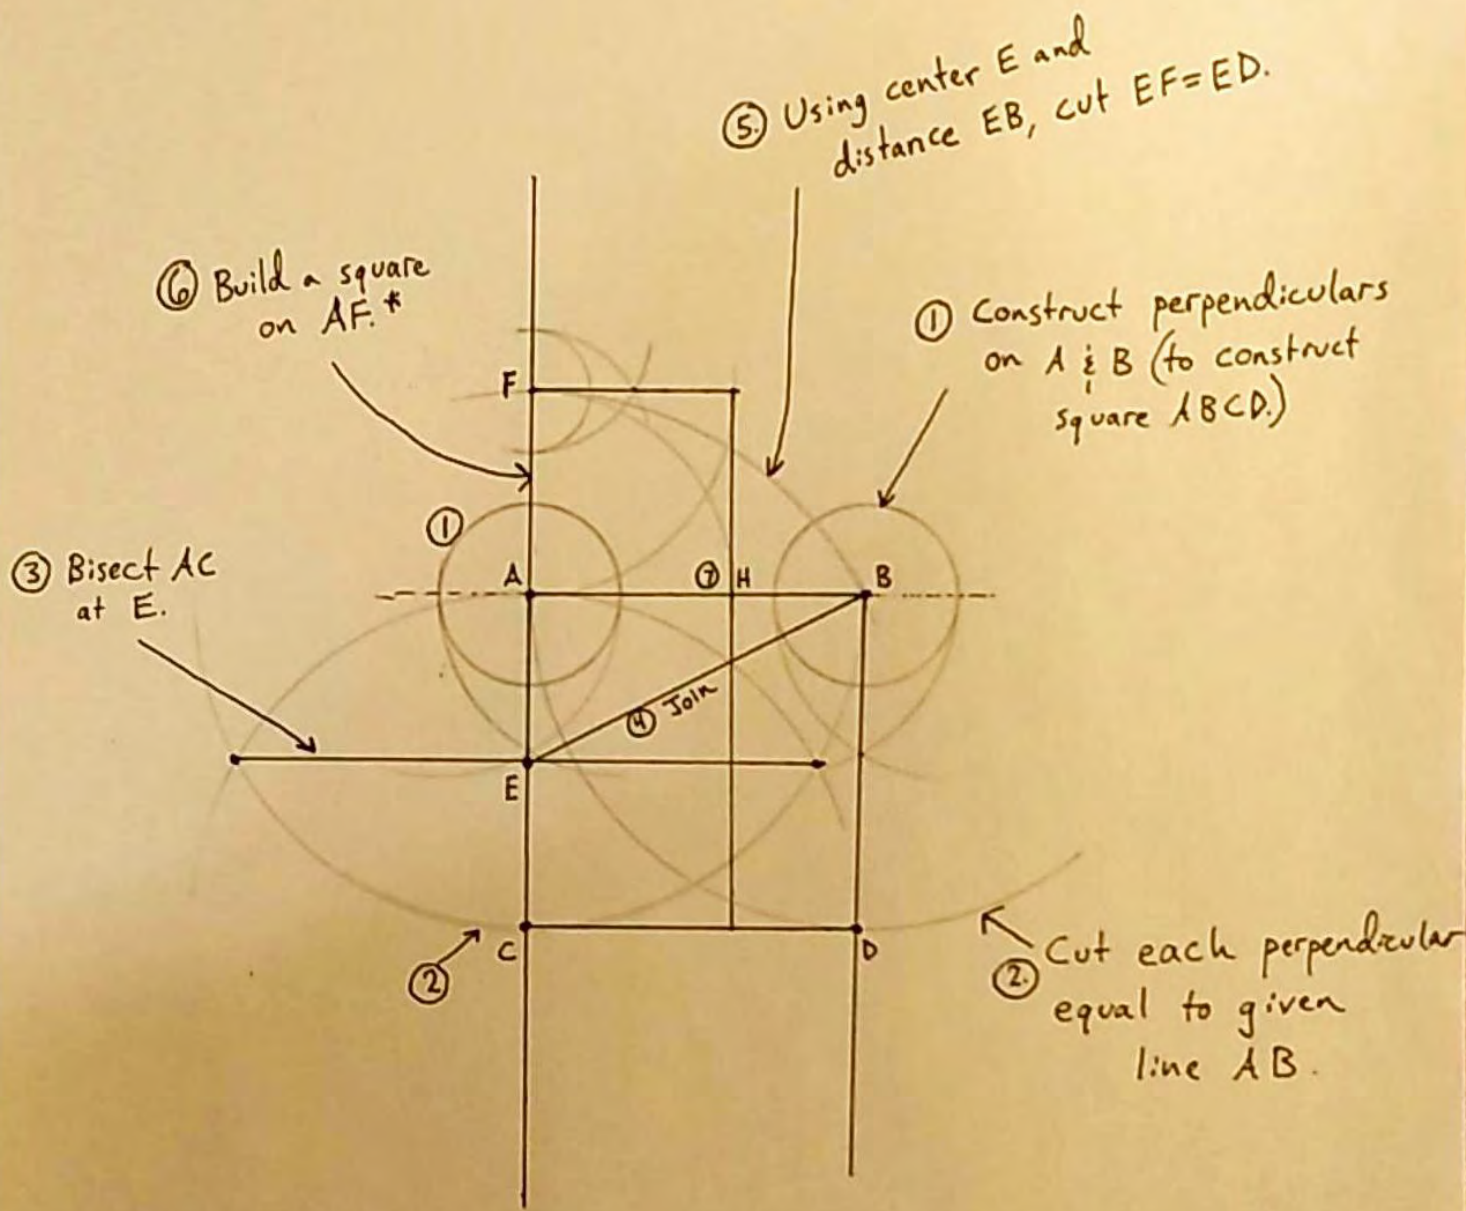 ⑤ Using center E and
distance EB, cut EF=ED.
⑥ Build a square
on AF.*
① Construct perpendiculars
on A & B (to construct
square ABCD.)
F
①
③ Bisect AC
at E.
A
⑦ H
B
④ Join
E
C
D
②
② Cut each perpendicular
equal to given
line AB.